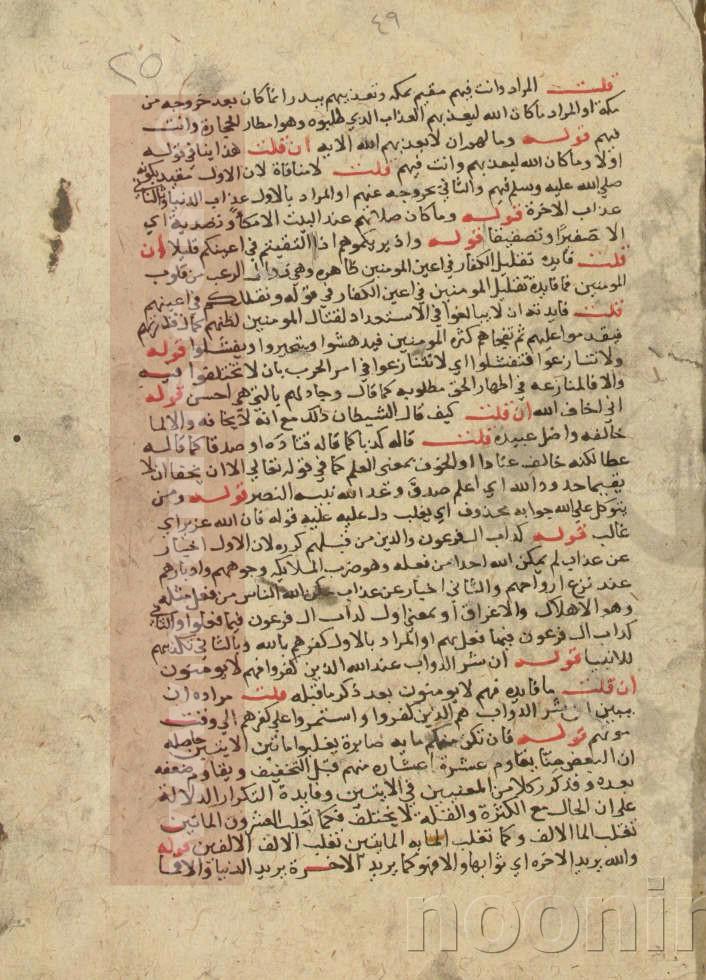 ٤٩
٢٥
قلت المراد وانت فيهم مقيم بمكه وتعذيبهم ببدر انما كان بعد خروجه من
مكة او المراد ما كان الله ليعذبهم العذاب الذي طلبوه وهو امطار الحجارة وانت
فيهم قوله وما لهم ان لا يعذبهم الله الايه ان قلت هذا ينافي قوله
اولا وما كان الله ليعذبهم وانت فيهم قلت لا منافاة لان الاول مقيد بكونه
صلي الله عليه وسلم فيهم والثاني بخروجه عنهم او المراد بالاول عذاب الدنيا والثاني
عذاب الاخرة قوله وما كان صلاتهم عند البيت الا مكا وتصدية اي
الا صفيرا وتصفيقا قوله واذ يريكموهم اذ التقيتم في اعينكم قليلا ان
قلت فايدة تقليل الكفار في اعين المومنين ظاهره وهي زوال الرعب من قلوب
المومنين فما فايدة تقليل المومنين في اعين الكفار في قوله ويقللكم في اعينهم
قلت فايدته ان لا يبالغوا في الاستعداد لقتال المومنين لظنهم كمال قدرتهم
فيقدموا عليهم ثم تفجاهم كثرة المومنين فيدهشوا ويتحيروا ويفشلوا قوله
ولا تنازعوا فتفشلوا اي لا تتنازعوا في امر الحرب بان لا تختلفوا فيه
والا فالمنازعه في اظهار الحق مطلوبه كما قال وجادلهم بالتي هي احسن قوله
اني اخاف الله ان قلت كيف قال الشيطان ذلك مع انه لا يخافه والا لما
خالفه واضل عبيده قلت قاله كذبا كما قاله قتادة او صدقا كما قاله
عطا لكنه خالف عنادا او الخوف بمعني العلم كما في قوله تعالي الا ان يخافا ان لا
يقيما حدود الله اي اعلم صدق وعد الله نبيه النصر قوله ومن
يتوكل علي الله جوابه محذوف اي يغلب دل عليه قوله فان الله عزيز اي
غالب قوله كداب ال فرعون والذين من قبلهم كرره لان الاول اخبار
عن عذاب لم يمكن الله احدا من فعله وهو ضرب الملايكه وجوههم وادبارهم
عند نزع ارواحهم والثاني اخبار عن عذاب مكن الله الناس من فعل مثله
وهو الاهلاك والاغراق او بمعني اول كداب ال فرعون فيما فعلوا والثاني
كداب ال فرعون فيما فعل بهم او المراد بالاول كفرهم بالله وبالثاني تكذيبهم
للانبيا قوله ان شر الدواب عند الله الذين كفروا فهم لا يومنون
ان قلت ما فايدة فهم لا يومنون بعد ذكر ما قبله قلت مراده ان
يبين ان شر الدواب هم الذين كفروا واستمروا علي كفرهم الي وقت
موتهم قوله فان تكن منكم مايه صابرة يغلبوا ماتين الايتين حاصله
ان البعض منا يقاوم عشرة اعشاره منهم قبل التخفيف ويقاوم ضعفه
بعده وقد ذكر كلا من المعنيين في الايتين وفايدة التكرار الدلالة
علي ان الحال مع الكثرة والقله لا يختلف فكما تغلب العشرون الماتين
تغلب الماا الالف وكما تغلب المايه الماتين تغلب الالف الالفين قوله
والله يريد الاخره اي ثوابها والا فهو كما يريد الاخرة يريد الدنيا والا لما
noonin